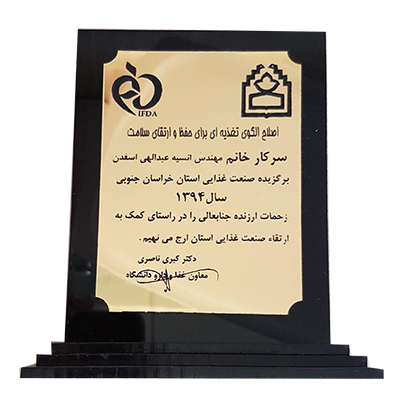 IFDA
اصلاح الگوی تغذیه ای برای حفظ و ارتقای سلامت
سرکار خانم مهندس انسیه عبدالهی اسفدن
برگزیده صنعت غذایی استان خراسان جنوبی
سال ۱۳۹۴
زحمات ارزنده جنابعالی را در راستای کمک به
ارتقاء صنعت غذایی استان ارج می نهیم.
دکتر کبری ناصری
معاون غذا و دارو دانشگاه